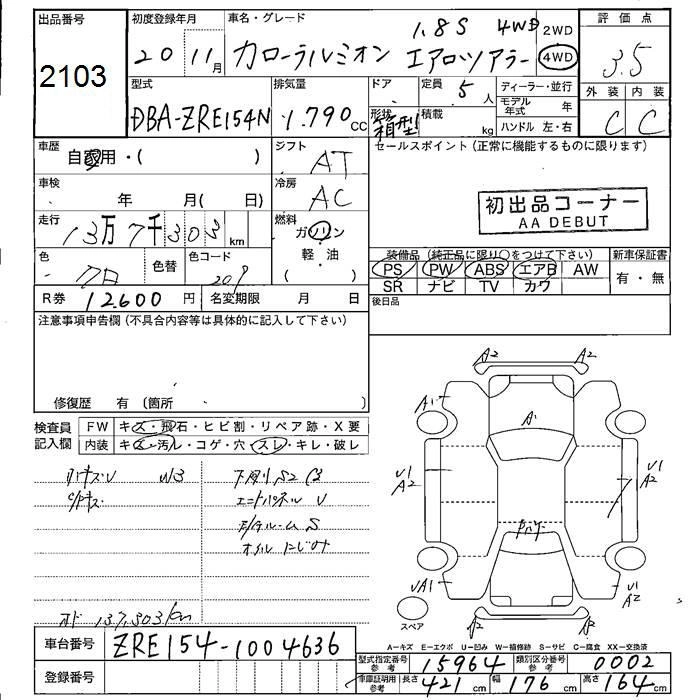 出品番号
2103
初度登録年月
20 11月
車名・グレード
1.8S 4WD
カローラルミオン エアロツアラー
2WD
4WD
評価点
3.5
外装 内装
C C
型式
DBA-ZRE154N
排気量
1.790 cc
ドア
定員
5 人
形状
箱型
積載
kg
ディーラー・並行
モデル年式 年
ハンドル 左・右
車歴
自家用・( )
シフト
AT
セールスポイント(正常に機能するものに限ります)
車検
年 月( 日)
冷房
AC
初出品コーナー
AA DEBUT
走行
13万7千303 km
燃料
ガソリン
軽・油
( )
色
色替
色コード
209
装備品(純正品に限り○をつけて下さい)
PS PW ABS エアB AW
SR ナビ TV カワ
新車保証書
有・無
R券 12.600 円
名変期限 月 日
後日品
注意事項申告欄(不具合内容等は具体的に記入して下さい)
修復歴 有(箇所 )
検査員記入欄
FW キズ・飛石・ヒビ割・リペア跡・X要
内装 キズ・汚ル・コゲ・穴・スレ・キレ・破レ
A2 A2
A1
A1
U1
A2
U1
A2
UA1
U1
A2
スペア
オド 137.303km
車台番号 ZRE154-1004636
登録番号
A=キズ E=エクボ U=凹み W=補修跡 S=サビ C=腐食 XX=交換済
型式指定番号 参考 15964
類別区分番号 参考 0002
車庫証明用 参考 長さ 421 cm 幅 176 cm 高さ 164 cm